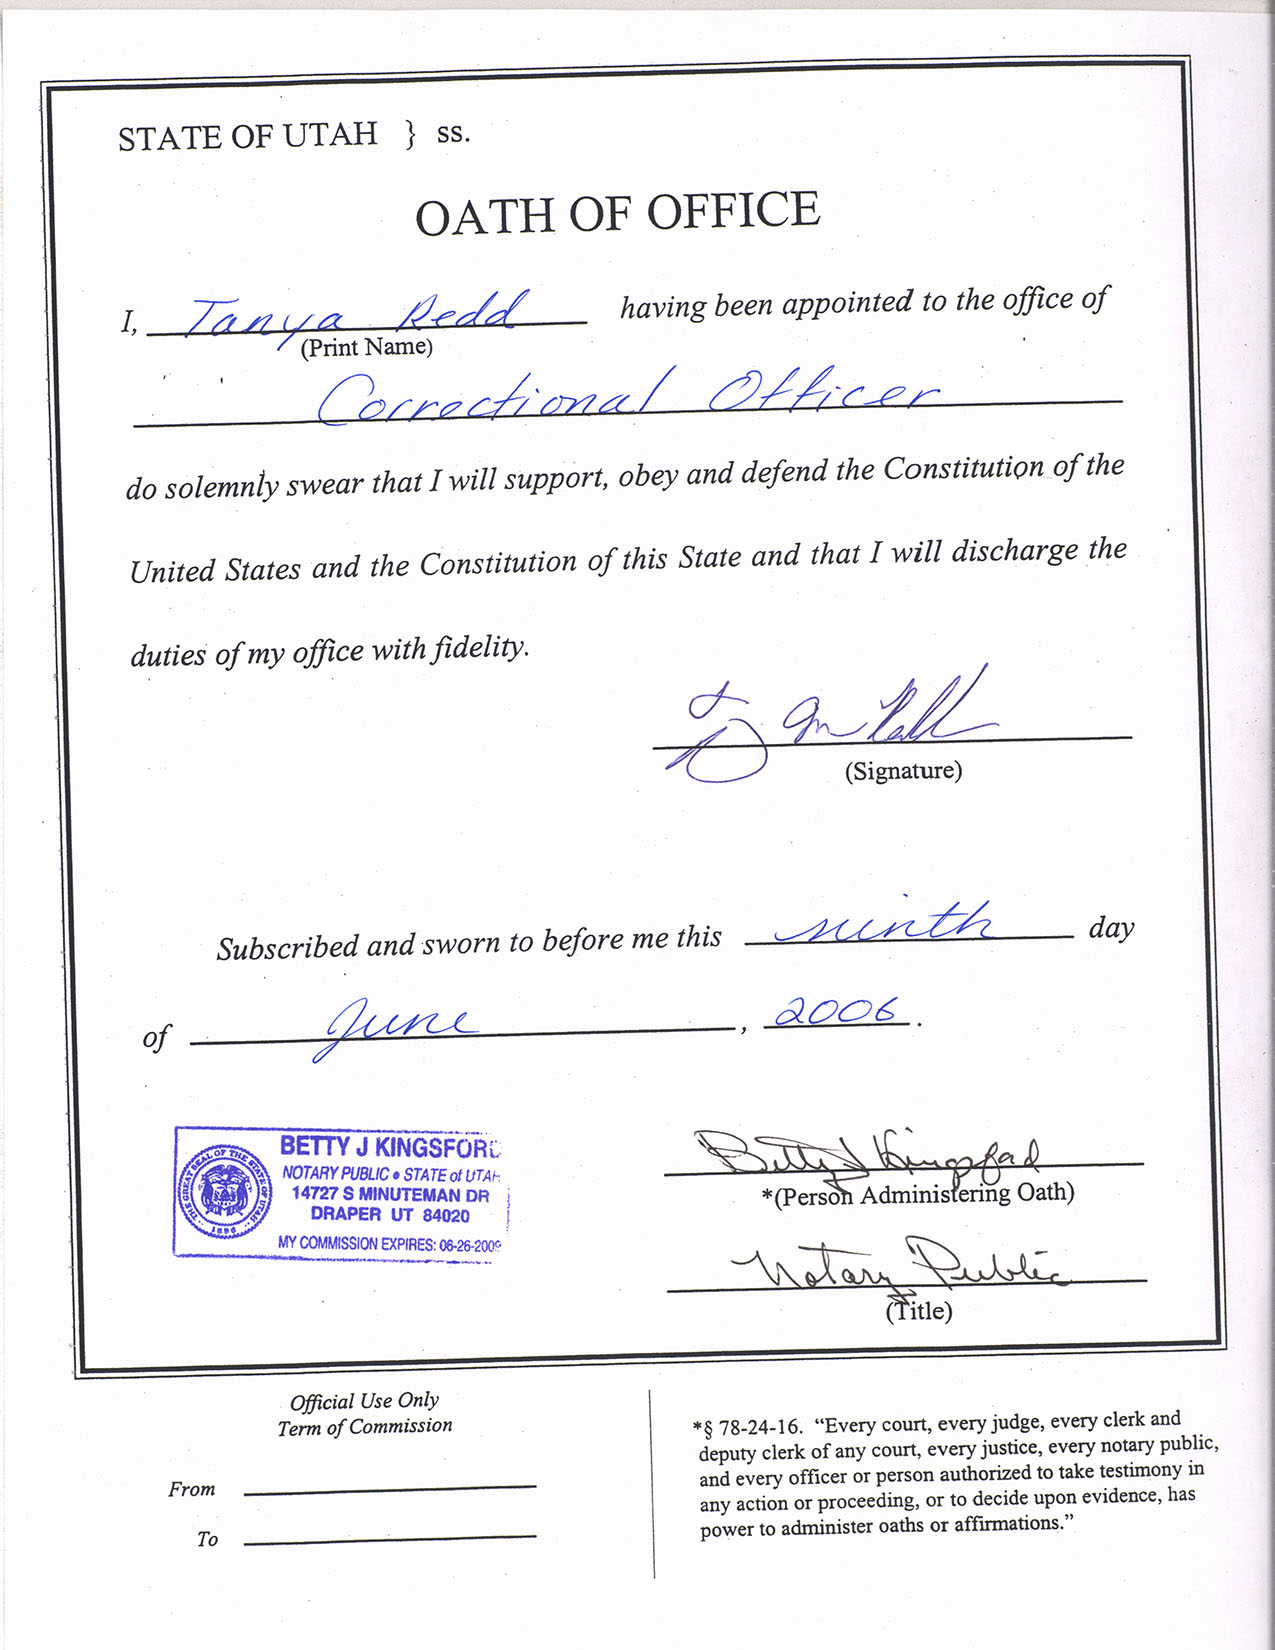 STATE OF UTAH } ss.
OATH OF OFFICE
I, Tanya Redd having been appointed to the office of
(Print Name)
Correctional Officer
do solemnly swear that I will support, obey and defend the Constitution of the
United States and the Constitution of this State and that I will discharge the
duties of my office with fidelity.
(Signature)
Subscribed and sworn to before me this ninth day
of June, 2006.
THE GREAT SEAL OF THE STATE OF UTAH
1896
BETTY J KINGSFORD
NOTARY PUBLIC • STATE of UTAH
14727 S MINUTEMAN DR
DRAPER UT 84020
MY COMMISSION EXPIRES: 06-26-2009
Betty J Kingsford
*(Person Administering Oath)
Notary Public
(Title)
Official Use Only
Term of Commission
From
To
*§ 78-24-16. “Every court, every judge, every clerk and
deputy clerk of any court, every justice, every notary public,
and every officer or person authorized to take testimony in
any action or proceeding, or to decide upon evidence, has
power to administer oaths or affirmations.”